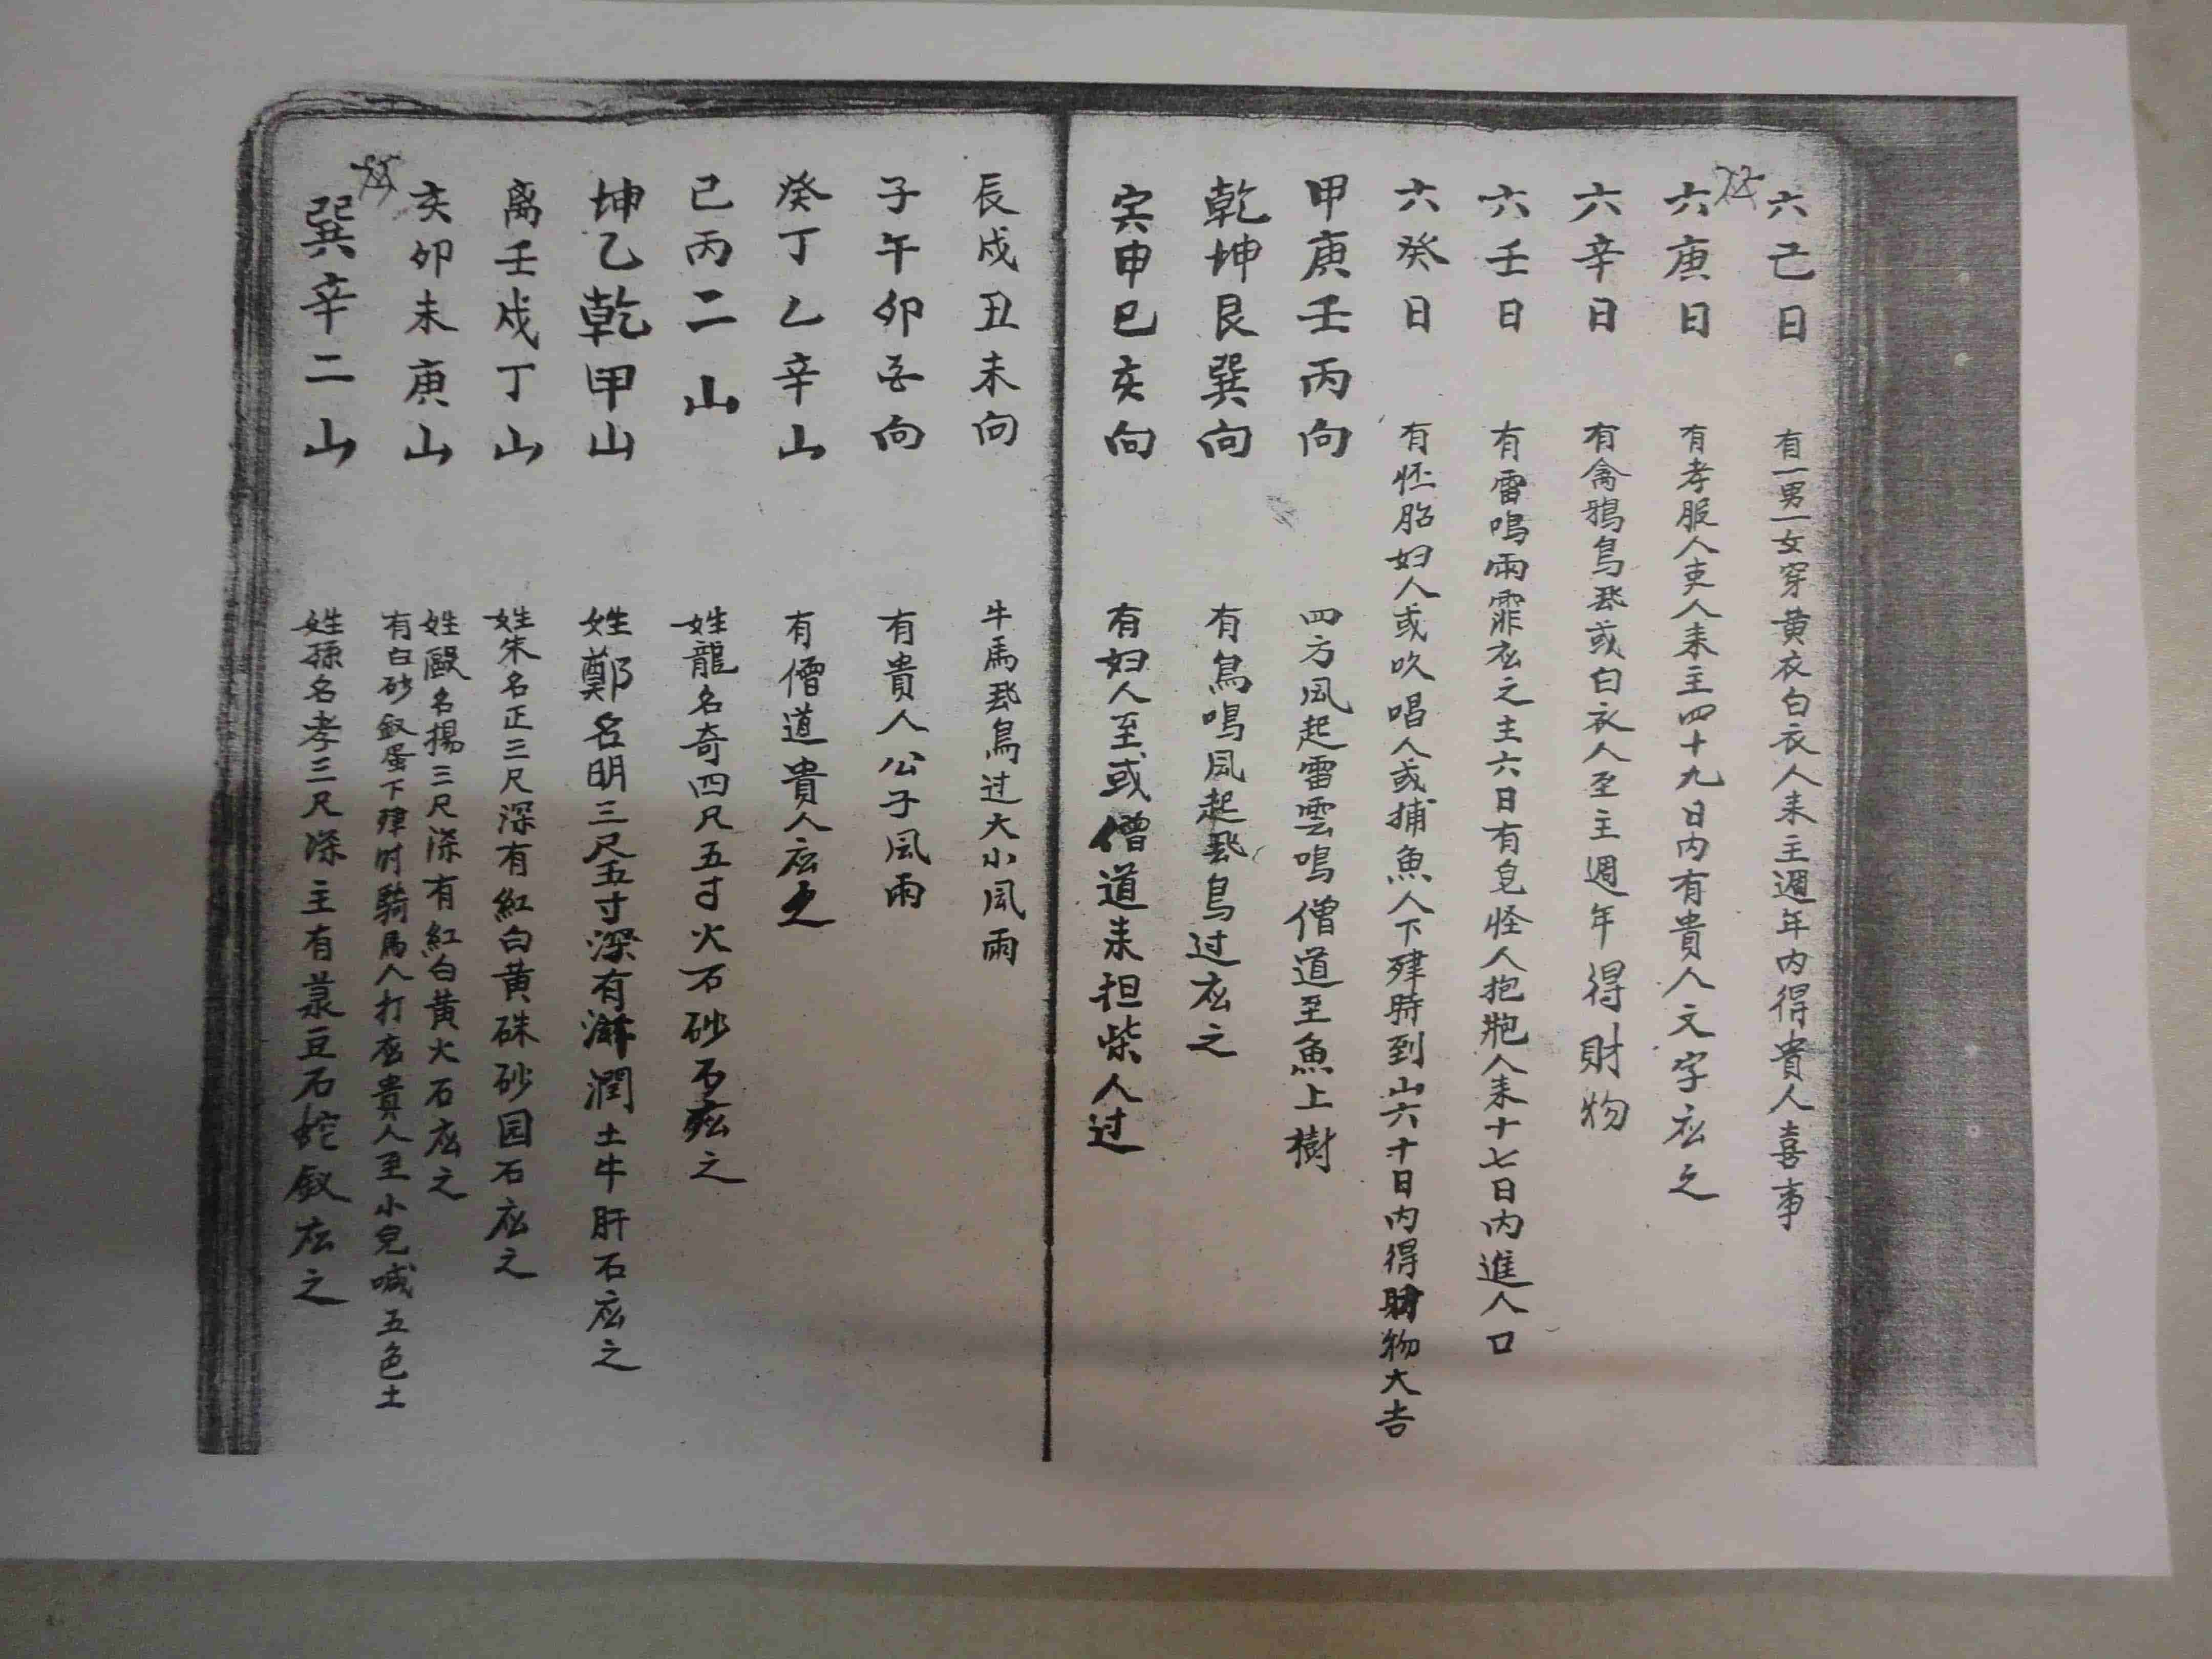 六己日 有一男一女穿黄衣白衣人来主週年内得貴人喜事
六庚日 有孝服人吏人来主四十九日内有貴人文字应之
六辛日 有禽鴉鳥飛或白衣人至主週年得財物
六壬日 有雷鳴雨霏应之主六日有皂怪人抱人来十七日内進人口
六癸日 有怀胎妇人或吹唱人或捕魚人下肂時到山六十日内得財物大吉
甲庚壬丙向 四方风起雷雲鳴僧道至魚上樹
乾坤艮巽向 有鳥鳴风起飛鳥过应之
寅申巳亥向 有妇人至或僧道来担柴人过
辰戍丑未向 牛馬飛鳥过大小风雨
子午卯酉向 有貴人公子风雨
癸丁乙辛山 有僧道貴人应之
己丙二山 姓龍名奇四尺五寸火石砂石应之
坤乙乾甲山 姓鄭名明三尺五寸深有潤土牛肝石应之
离壬戍丁山 姓朱名正三尺深有紅白黄硃砂园石应之
亥卯未庚山 姓毆名揚三尺深有紅白黄火石应之
有白砂蛋下肂时騎馬人打应貴人至小兒喊五色土
巽辛二山 姓孫名孝三尺深主有豆石蛇应之